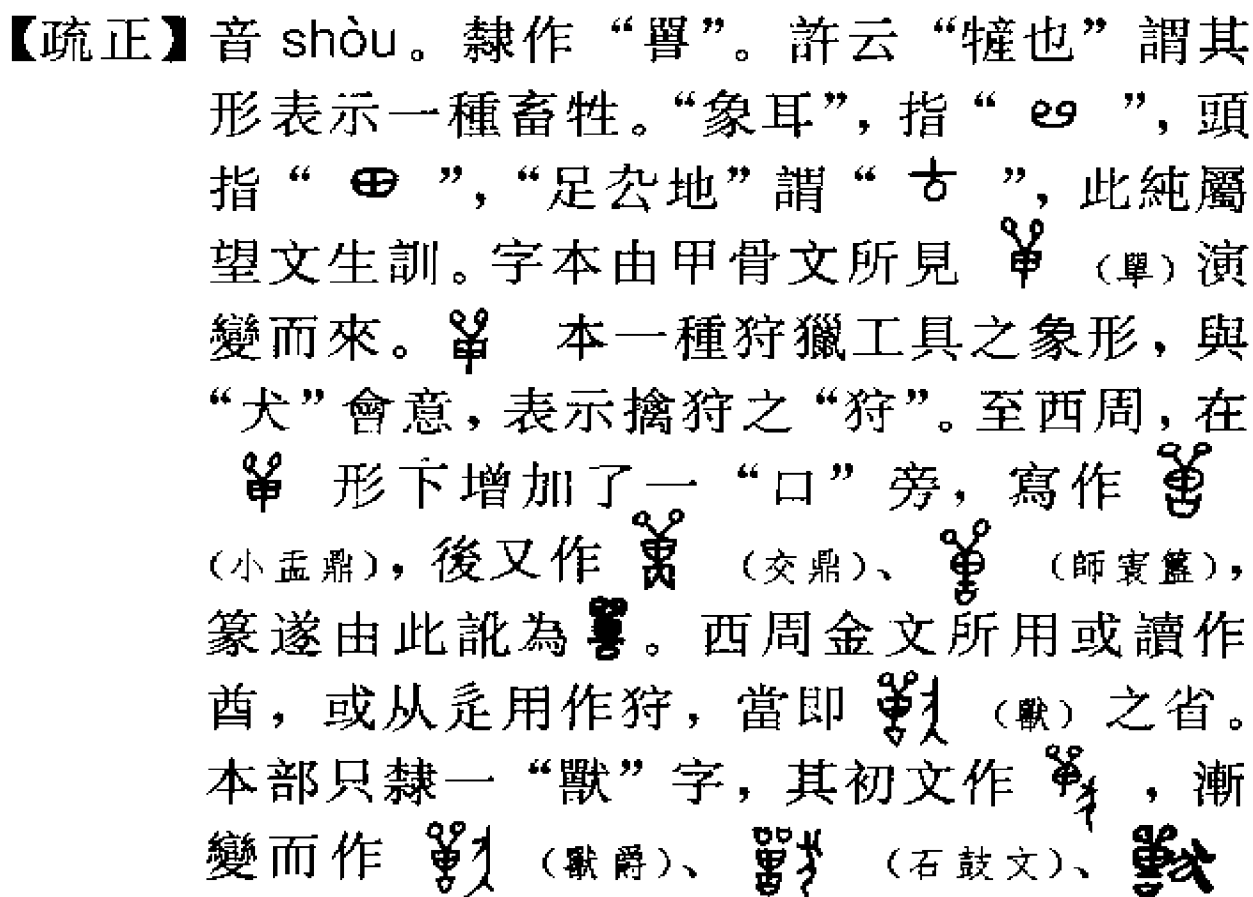 【疏正】音 shòu。隸作“嘼”。許云“㹌也”謂其
形表示一種畜牲。“象耳”，指“ ”，頭
指“ ”，“足厹地”謂“ ”，此純屬
望文生訓。字本由甲骨文所見 （單）演
變而來。 本一種狩獵工具之象形，與
“犬”會意，表示擒狩之“狩”。至西周，在
形下增加了一“口”旁，寫作
（小盂鼎），後又作 （交鼎）、 （師寰簋），
篆遂由此訛為 。西周金文所用或讀作
酋，或从辵用作狩，當即 （獸）之省。
本部只隸一“獸”字，其初文作 ，漸
變而作 （獸爵）、 （石鼓文）、